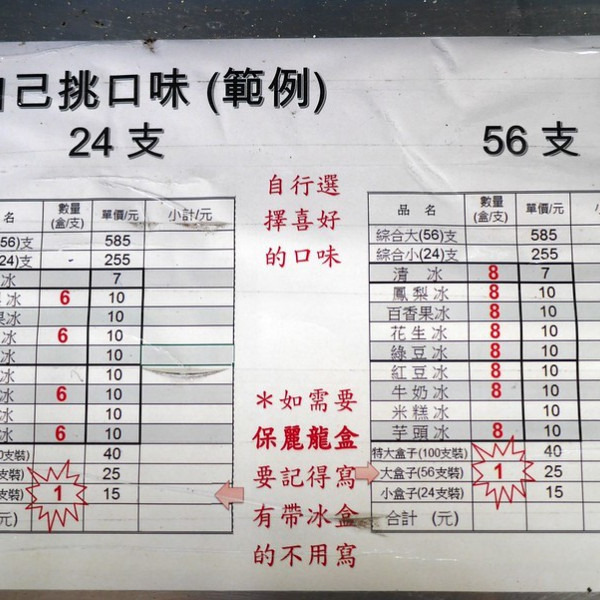 自己挑口味 (範例)
24 支
56 支
自行選
擇喜好
的口味
名 數量(盒/支) 單價/元 小計/元
56)支 585
24)支 - 255
冰 7
冰 6 10
冰 10
冰 6 10
冰 10
冰 10
冰 6 10
冰 10
冰 6 10
支裝) 40
支裝) 25
支裝) 1 15
元)
品 名 數量(盒/支) 單價/元
綜合大(56)支 585
綜合小(24)支 255
清 冰 8 7
鳳梨冰 8 10
百香果冰 8 10
花生冰 8 10
綠豆冰 8 10
紅豆冰 8 10
牛奶冰 8 10
米糕冰 10
芋頭冰 8 10
特大盒子(100支裝) 40
大盒子(56支裝) 1 25
小盒子(24支裝) 15
合計 (元)
＊如需要
保麗龍盒
要記得寫
有帶冰盒
的不用寫